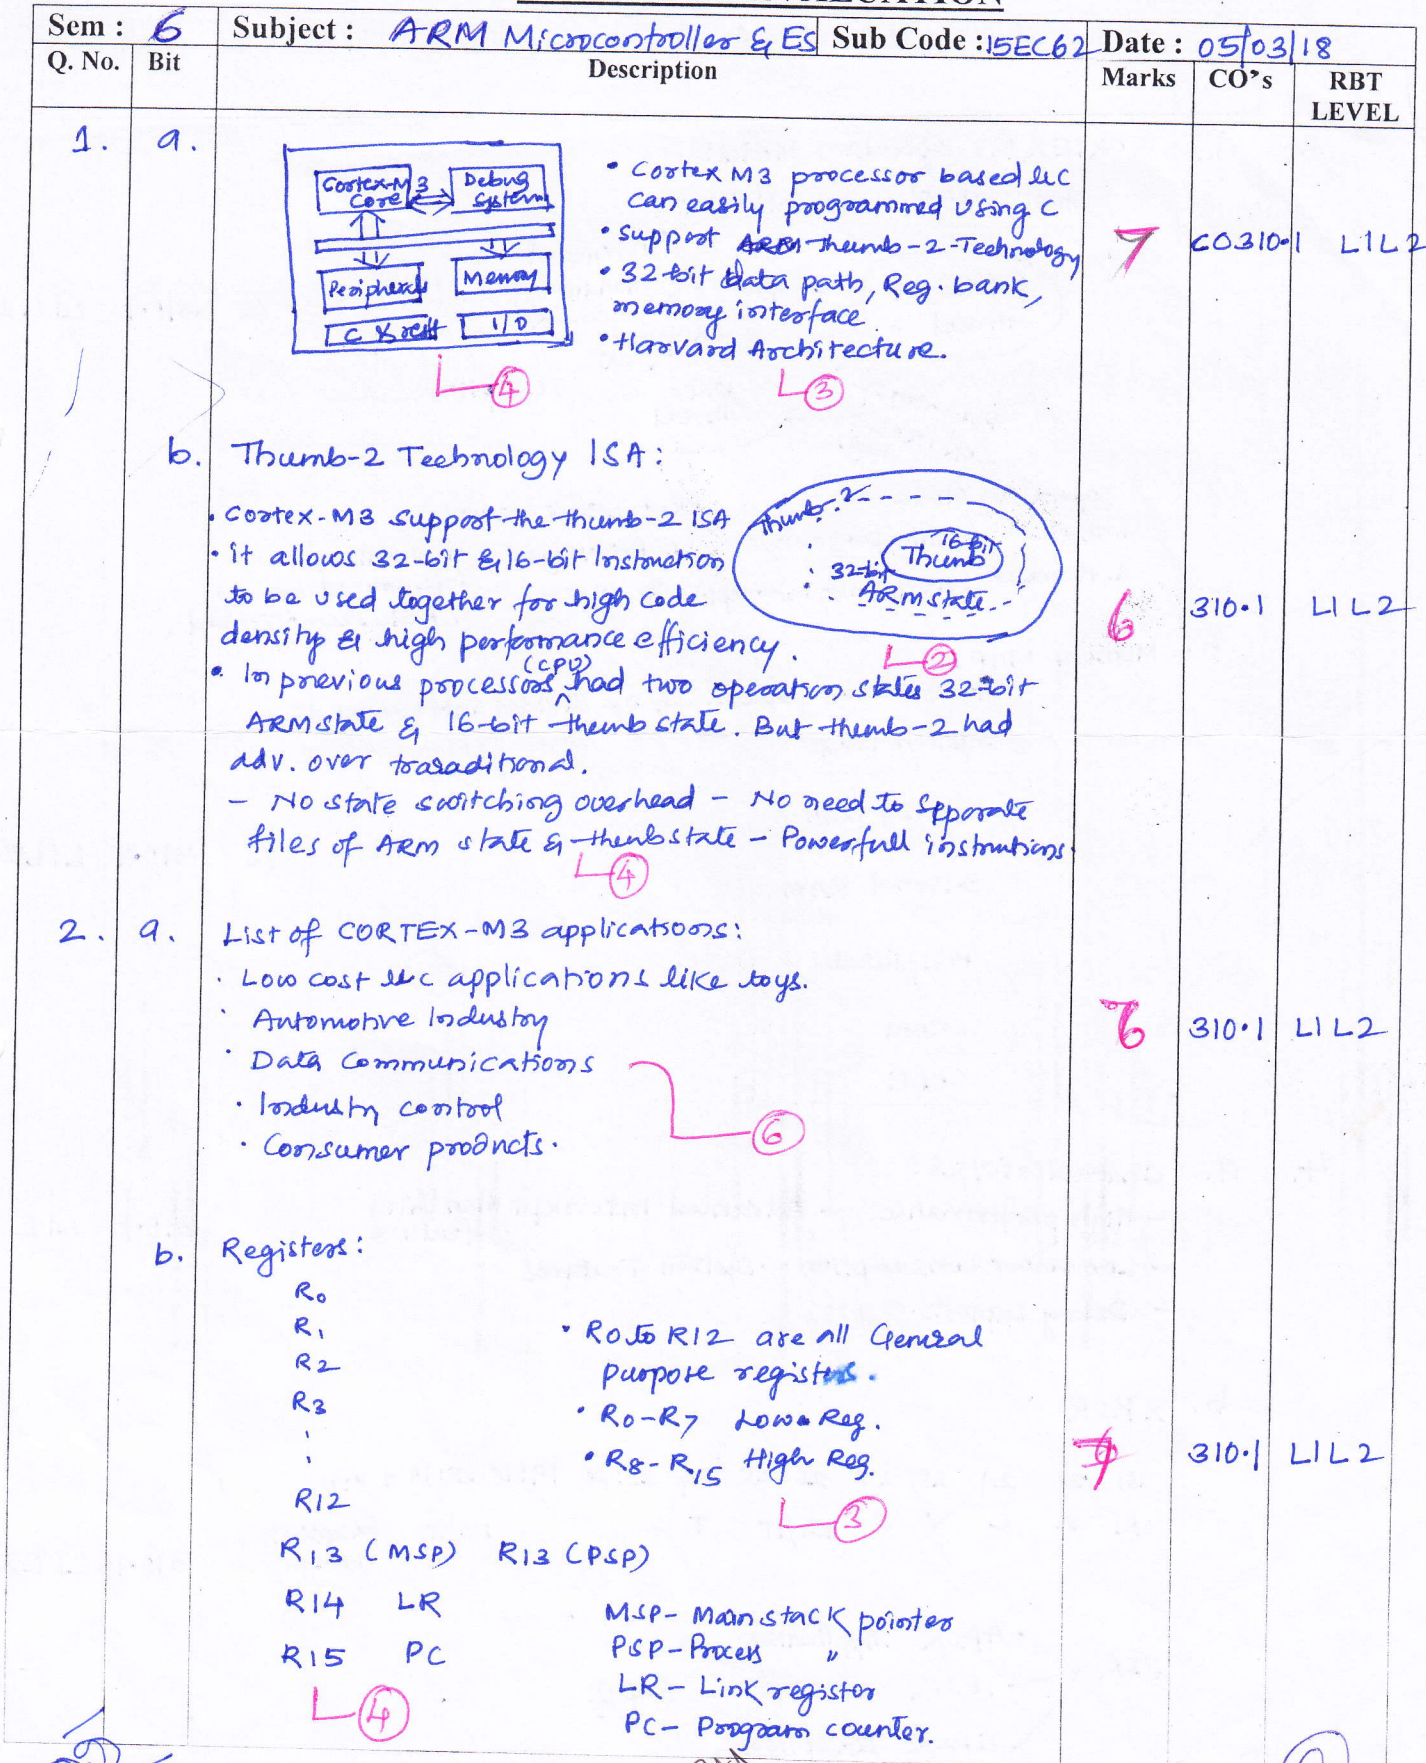 Sem : 6 Subject : ARM Microcontroller & ES Sub Code : 15EC62 Date : 05/03/18
Q. No. Bit Description Marks CO's RBT LEVEL
1. a.
Cortex-M3 Core Debug System
Peripherals Memory
I/O
④
• Cortex M3 processor based uc
can easily programmed using C
• support Thumb-2-Technology
• 32-bit data path, Reg. bank,
memory interface
• Harvard Architecture.
③
7 CO310.1 L1L2
b. Thumb-2 Technology ISA:
• Cortex-M3 support the thumb-2 ISA
• it allows 32-bit & 16-bit Instruction
to be used together for high code
density & high performance efficiency.
Thumb-2
16-bit
Thumb
32-bit
ARM state
②
• In previous processors (CPU) had two operation states 32-bit
ARM state & 16-bit thumb state. But thumb-2 had
adv. over trasaditional.
- No state switching overhead - No need to Spparate
files of ARM state & thumb state - Powerfull instrutions.
④
6 310.1 L1 L2
2. a. List of CORTEX-M3 applications:
• Low cost uc applications like toys.
• Automotive Industry
• Data Communications
• Industry control
• Consumer products.
⑥
6 310.1 L1 L2
b. Registers:
R0
R1
R2
R3
:
R12
R13 (MSP) R13 (PSP)
R14 LR
R15 PC
④
• R0 to R12 are all General
purpose registers.
• R0-R7 Low Reg.
• R8-R15 High Reg.
③
MSP- Main stack pointer
PSP- Process "
LR- Link register
PC- Program counter.
7 310.1 L1 L2